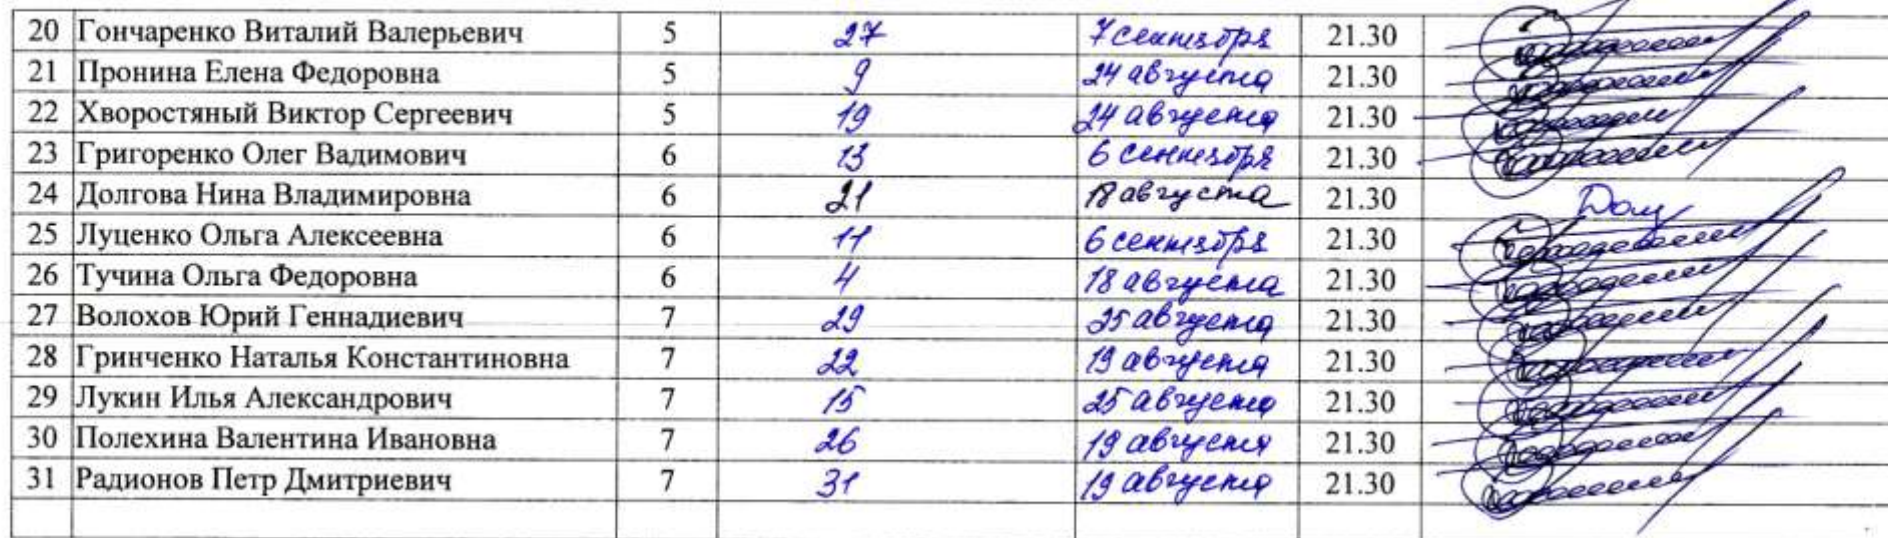 20 Гончаренко Виталий Валерьевич 5 27 7 сентября 21.30
21 Пронина Елена Федоровна 5 9 24 августа 21.30
22 Хворостяный Виктор Сергеевич 5 19 24 августа 21.30
23 Григоренко Олег Вадимович 6 13 6 сентября 21.30
24 Долгова Нина Владимировна 6 21 18 августа 21.30
25 Луценко Ольга Алексеевна 6 11 6 сентября 21.30
26 Тучина Ольга Федоровна 6 4 18 августа 21.30
27 Волохов Юрий Геннадиевич 7 29 25 августа 21.30
28 Гринченко Наталья Константиновна 7 22 19 августа 21.30
29 Лукин Илья Александрович 7 15 25 августа 21.30
30 Полехина Валентина Ивановна 7 26 19 августа 21.30
31 Радионов Петр Дмитриевич 7 31 19 августа 21.30